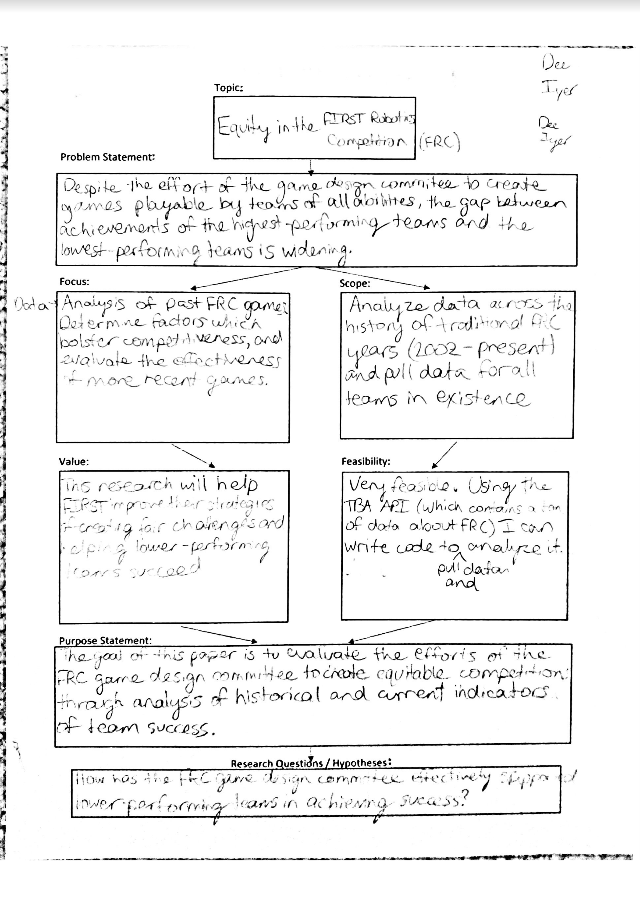 Dee
Iyer
Dee
Iyer
Topic:
Equity in the FIRST Robotics
Competition (FRC)
Problem Statement:
Despite the effort of the game design committee to create
games playable by teams of all abilities, the gap between
achievements of the highest-performing teams and the
lowest-performing teams is widening.
Focus:
Data
Analysis of past FRC games
Determine factors which
bolster competitiveness, and
evaluate the effectiveness
of more recent games.
Scope:
Analyze data across the
history of traditional FRC
years (2002-present)
and pull data for all
teams in existence
Value:
This research will help
FIRST improve their strategies
of creating fair challenges and
helping lower-performing
teams succeed
Feasibility:
Very feasible. Using the
TBA API (which contains a ton
of data about FRC) I can
write code to analyze it.
pull data
and
Purpose Statement:
The goal of this paper is to evaluate the efforts of the
FRC game design committee to create equitable competition
through analysis of historical and current indicators
of team success.
Research Questions / Hypotheses:
How has the FRC game design committee effectively supported
lower-performing teams in achieving success?